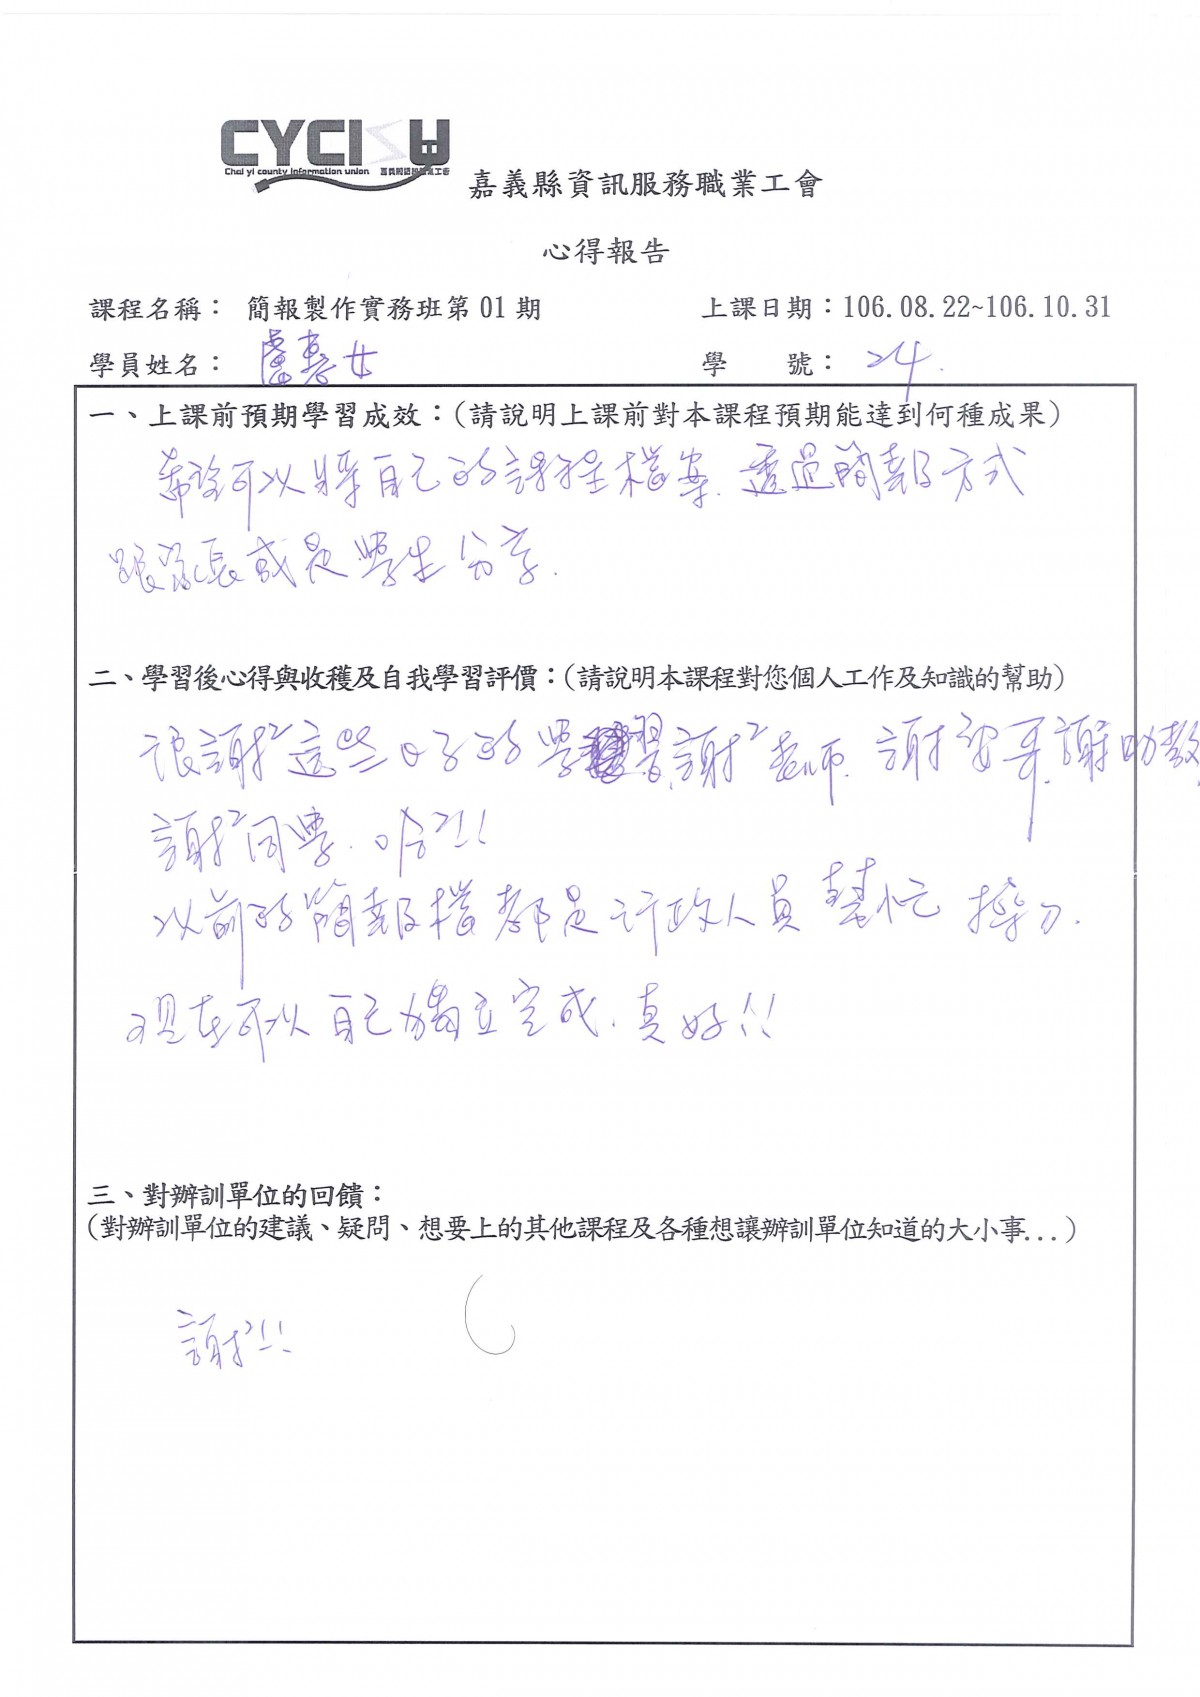 CYCISU
Chai yi county information union 嘉義縣資訊服務職業工會
嘉義縣資訊服務職業工會
心得報告
課程名稱： 簡報製作實務班第 01 期 上課日期：106.08.22~106.10.31
學員姓名： 學 號： 24.
一、上課前預期學習成效：(請說明上課前對本課程預期能達到何種成果)
希望可以將自己的課程檔案. 透過簡報方式
跟家長或是學生分享.
二、學習後心得與收穫及自我學習評價：(請說明本課程對您個人工作及知識的幫助)
很謝²這些日子的學習. 謝²老師. 謝 哥. 謝助教
謝²同學. 哈²!!
以前的簡報檔都是行政人員幫忙
現在可以自己獨立完成. 真好!!
三、對辦訓單位的回饋：
(對辦訓單位的建議、疑問、想要上的其他課程及各種想讓辦訓單位知道的大小事...)
謝²!!